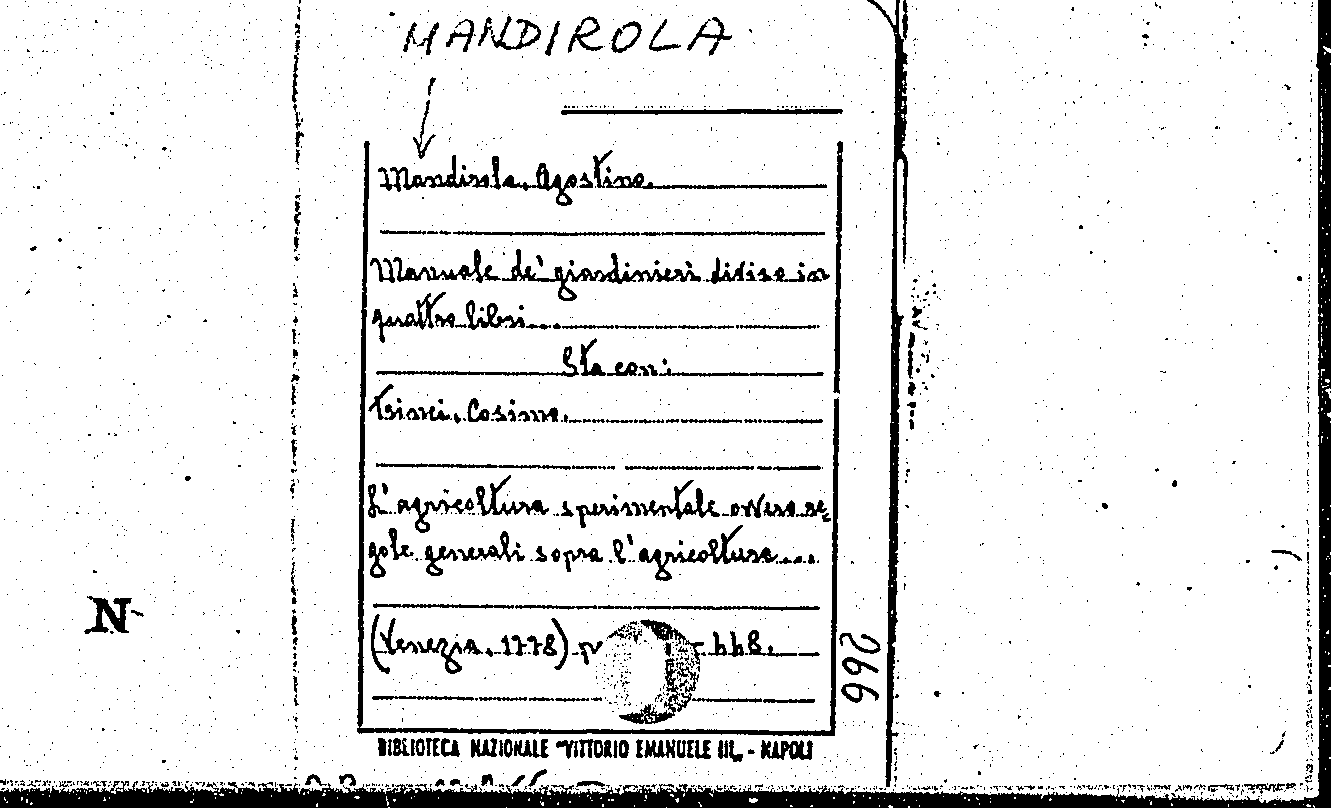 MANDIROLA
Mandirola, Agostino.
Manuale de' giardinieri diviso in
quattro libri...
Sta con:
Trinci, Cosimo.
L'agricoltura sperimentale ovvero re=
gole generali sopra l'agricoltura...
(Venezia, 1778)
BIBLIOTECA NAZIONALE "VITTORIO EMANUELE III" - NAPOLI
266
N